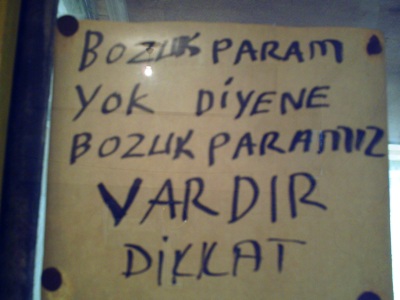 BOZUK PARAM
YOK DİYENE
BOZUK PARAMIZ
VARDIR
DİKKAT